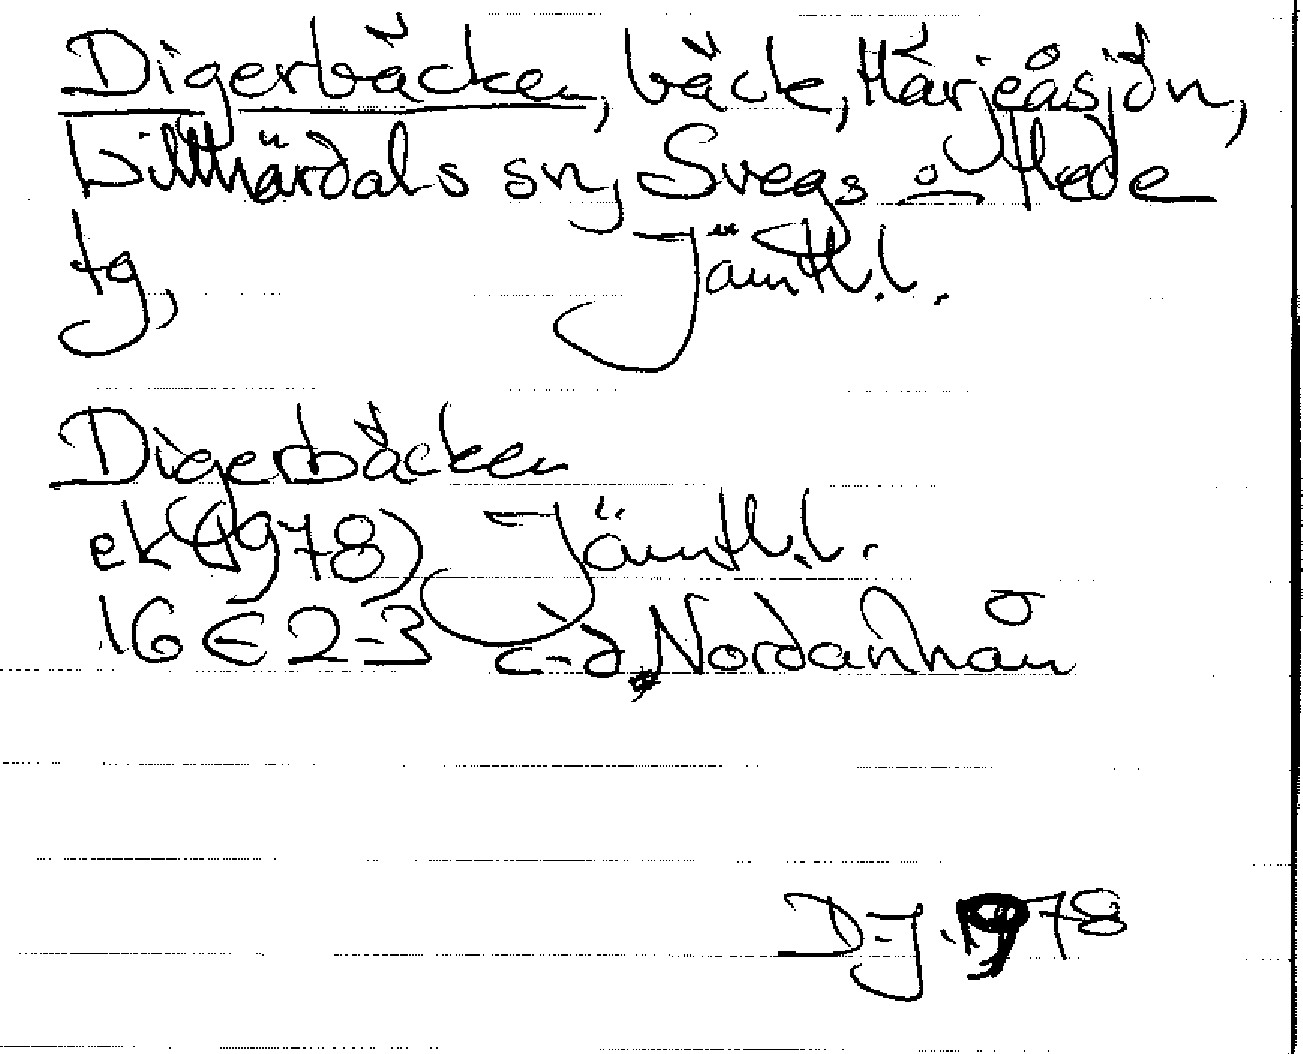 Digerbäcken, bäck, Härjeåsjön,
Lillhärdals sn, Svegs o Hede
tg, Jämtl.l.
Digerbäcken
ek (1978) Jämtl.l.
16 E 2-3 c-d, Nordanhån
D-J. 1978